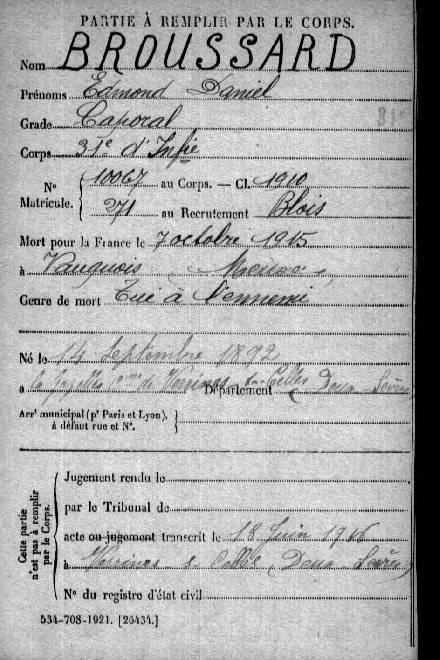 PARTIE À REMPLIR PAR LE CORPS.
Nom BROUSSARD
Prénoms Edmond Daniel
Grade Caporal
31e
Corps 31e d'Infie
N° Matricule. { 10067 au Corps. — Cl. 1910
271 au Recrutement Blois
Mort pour la France le 7 octobre 1915
à Vauquois (Meuse)
Genre de mort Tué à l'ennemi
Né le 14 Septembre 1892
à Cne de Verrines s/s Celles Département Deux-Sèvres
Arrt municipal (pr Paris et Lyon), à défaut rue et N°. }
Cette partie n'est pas à remplir par le Corps.
Jugement rendu le
par le Tribunal de
acte ou jugement transcrit le 18 Juin 1916
à Verrines s Celles (Deux-Sèvres)
N° du registre d'état civil
534-708-1921. [26434.]